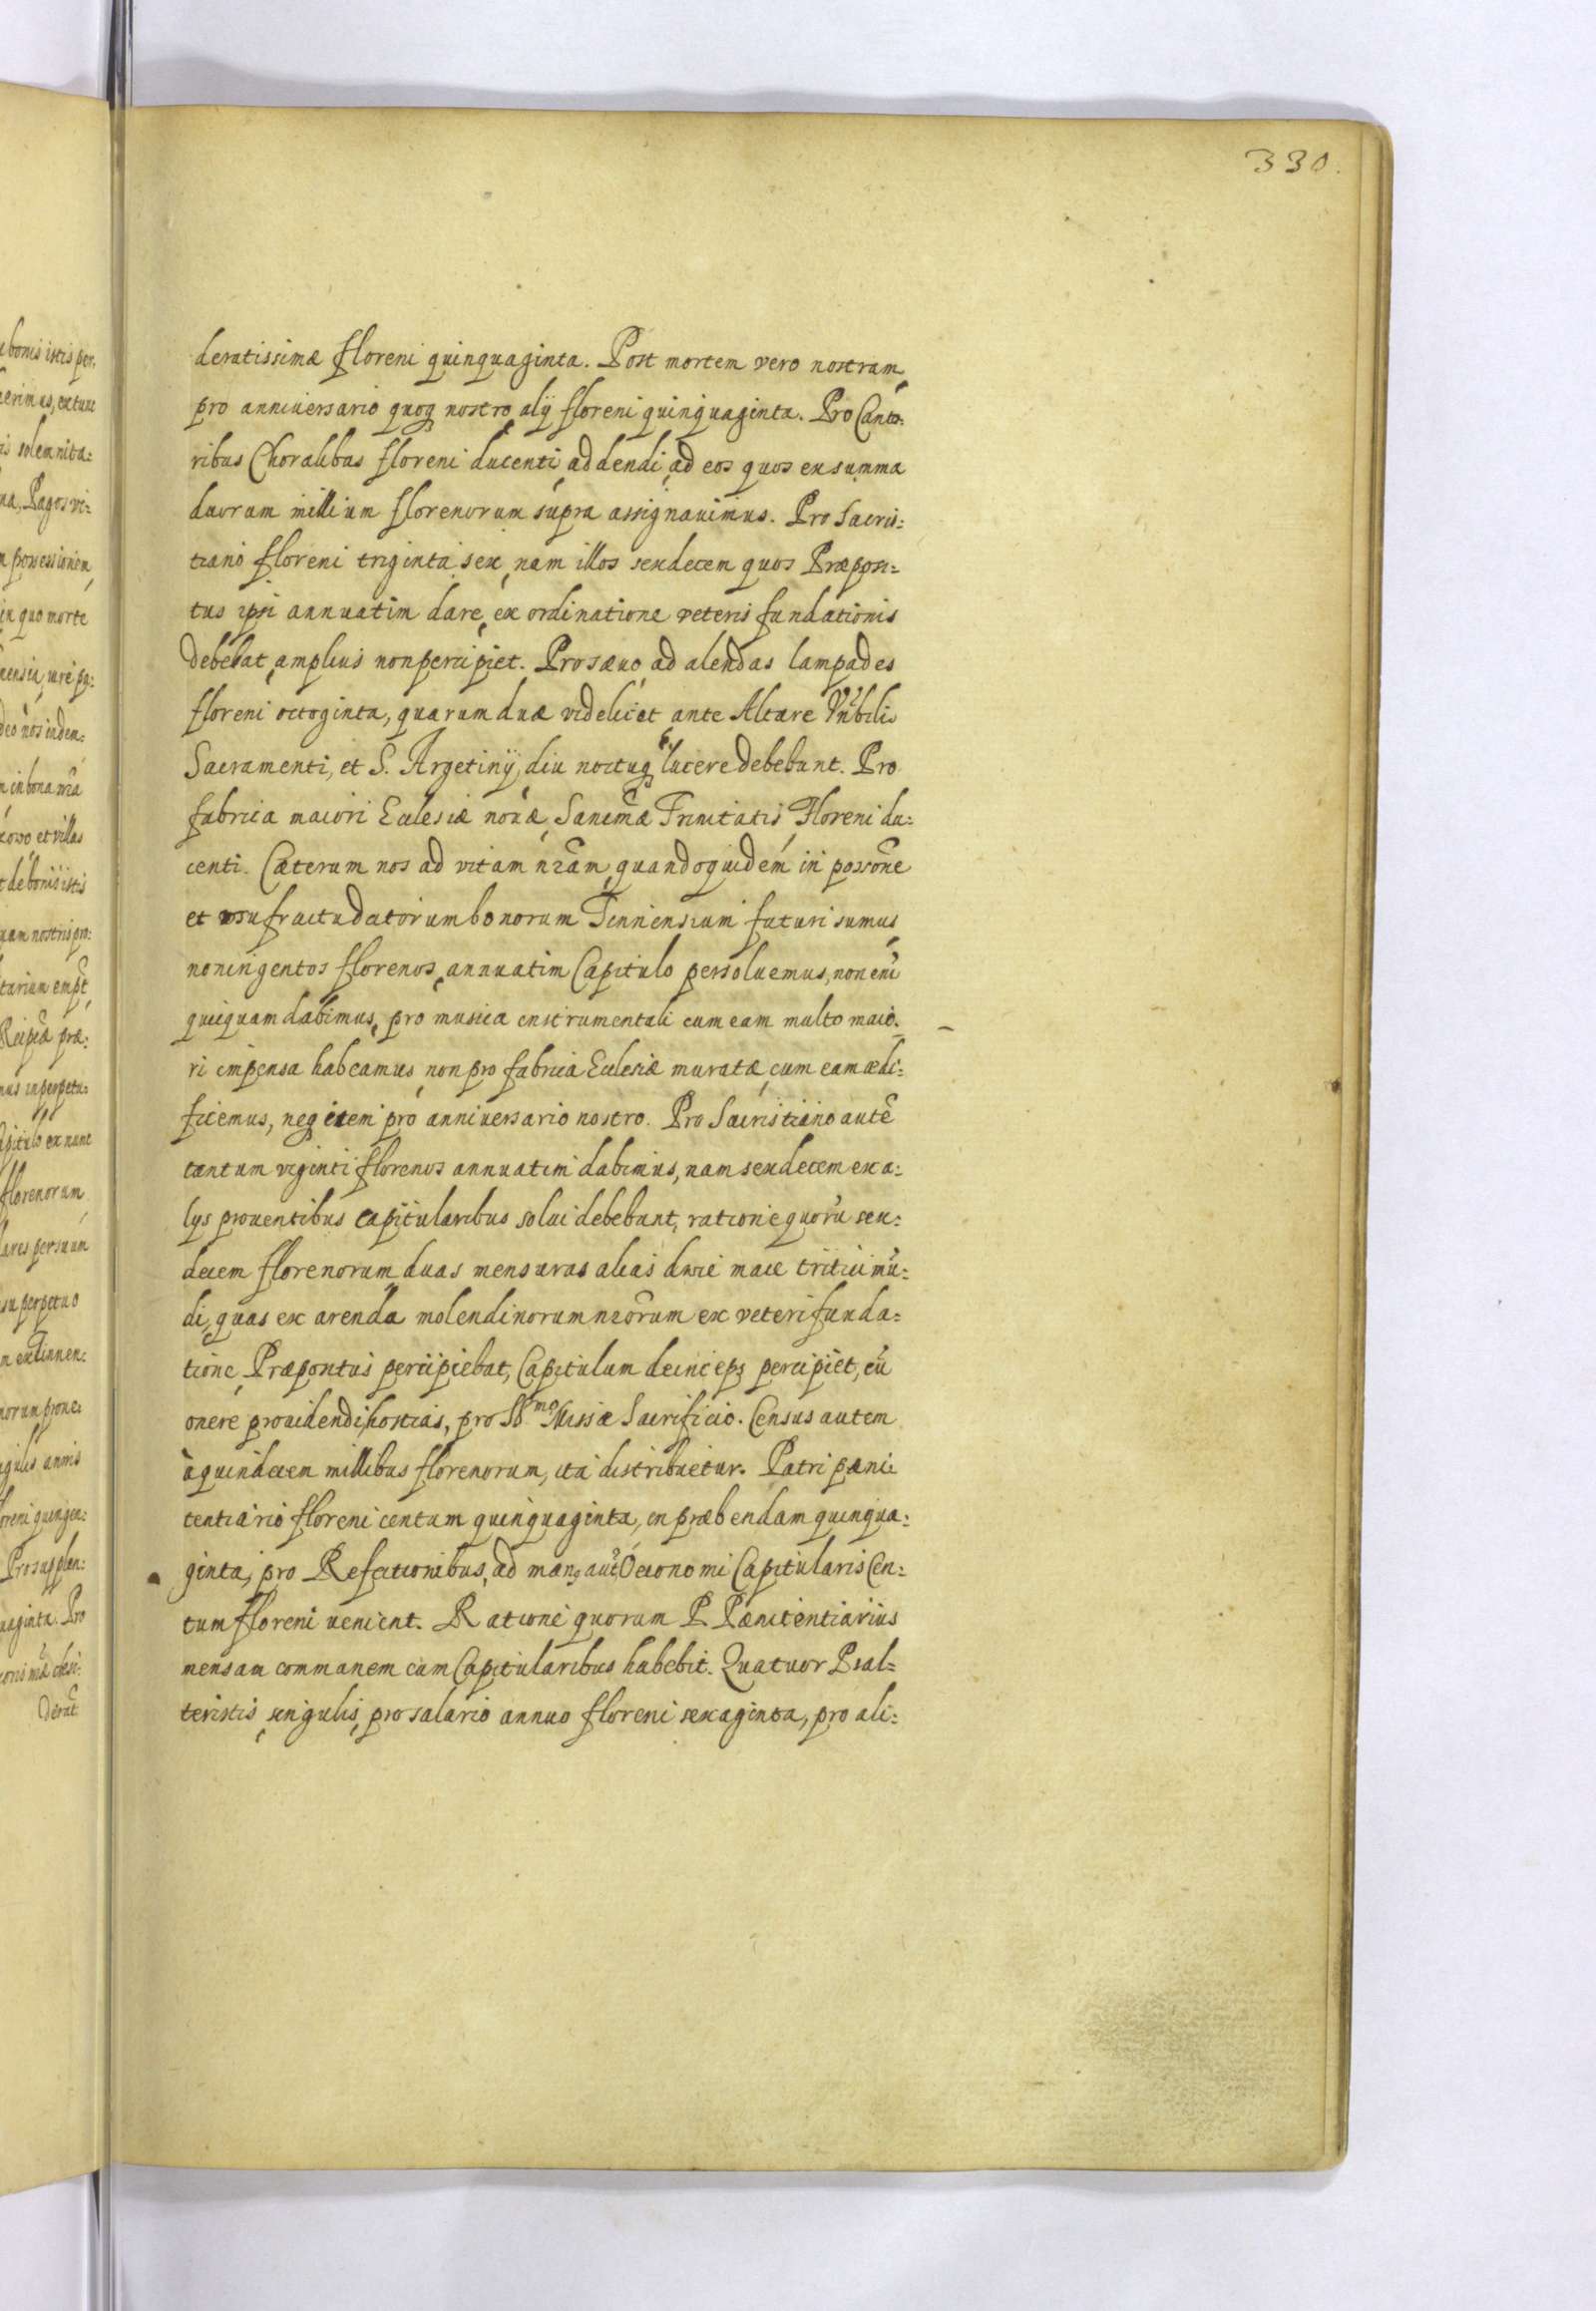 330.
deratissimæ floreni quinquaginta. Post mortem vero nostram,
pro anniversario quoq nostro, alÿ floreni quinquaginta. Pro Canto:
ribus Choralibus floreni ducenti, addendi, ad eos quos ex summa
duorum millium florenorum supra assignauimus. Pro Sacris:
tiano floreni triginta sex, nam illos sexdecem quos Præposi:
tus ipsi annuatim dare, ex ordinatione veteris fundationis
debebat, amplius non percipiet. Pro sæuo, ad alendas lampades
floreni octoginta, quarum duæ videlicet, ante Altare Vnrbilis
Sacramenti, et S. Argetinÿ, diu noctuq lucere debebunt. Pro
fabrica maiori Ecclesiæ nouæ, Sanctmæ Trinitatis, Floreni du:
centi. Cæterum nos ad vitam nrãm, quandoquidem in possone
et vsufructu dictorum bonorum Tinnensium futuri sumus,
noningentos florenos, annuatim Capitulo persoluemus, non eni
quicquam dabimus, pro musica instrumentali cum eam multo maio:
ri impensa habeamus, non pro fabrica Ecclesiæ muratæ, cum eam ædi:
ficemus, neq item pro anniversario nostro. Pro Sacristiano autẽ
tantum viginti florenos annuatim dabimus, nam sexdecem ex a:
lys prouentibus capitularibus solui debebunt, ratione quorũ sex:
decem florenorum, duas mensuras alias dwie mace tritici mũ:
di, quas ex arenda molendinorum nrorum ex veteri funda:
tione, Præpositus percipiebat, Capitulum deinceps percipiet, cũ
onere prouidendi, hostias, pro SSmo Missæ Sacrificio. Census autem
à quindecem millibus florenorum, ita distribuetur. Patri pæni:
tentiario floreni centum quinquaginta, in præbendam quinqua:
ginta, pro Refectionibus, ad man9 aut Oeconomi Capitularis Cen:
tum floreni venient. Ratione quorum P. Pænitentiarius
mensam communem cum Capitularibus habebit. Quatuor Psal:
teristis, singulis, pro salario annuo floreni sexaginta, pro ali: